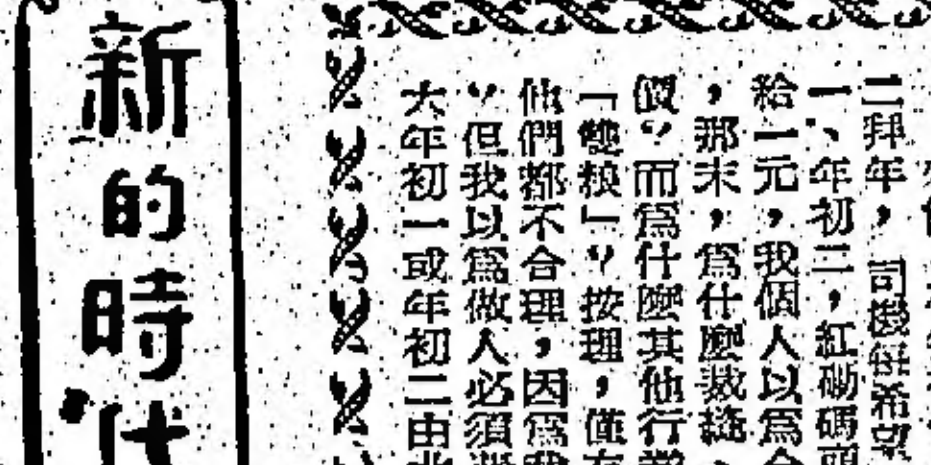 二拜年，司機
一、年初二，紅磡碼頭
給一元，我個人以爲
，那末，爲什麼裁縫
價，而爲什麼其他行業
「雙糧」，按理，僅有
他們都不合理，因爲我
，但我以爲做人必須
大年初一或年初二由
新的時代